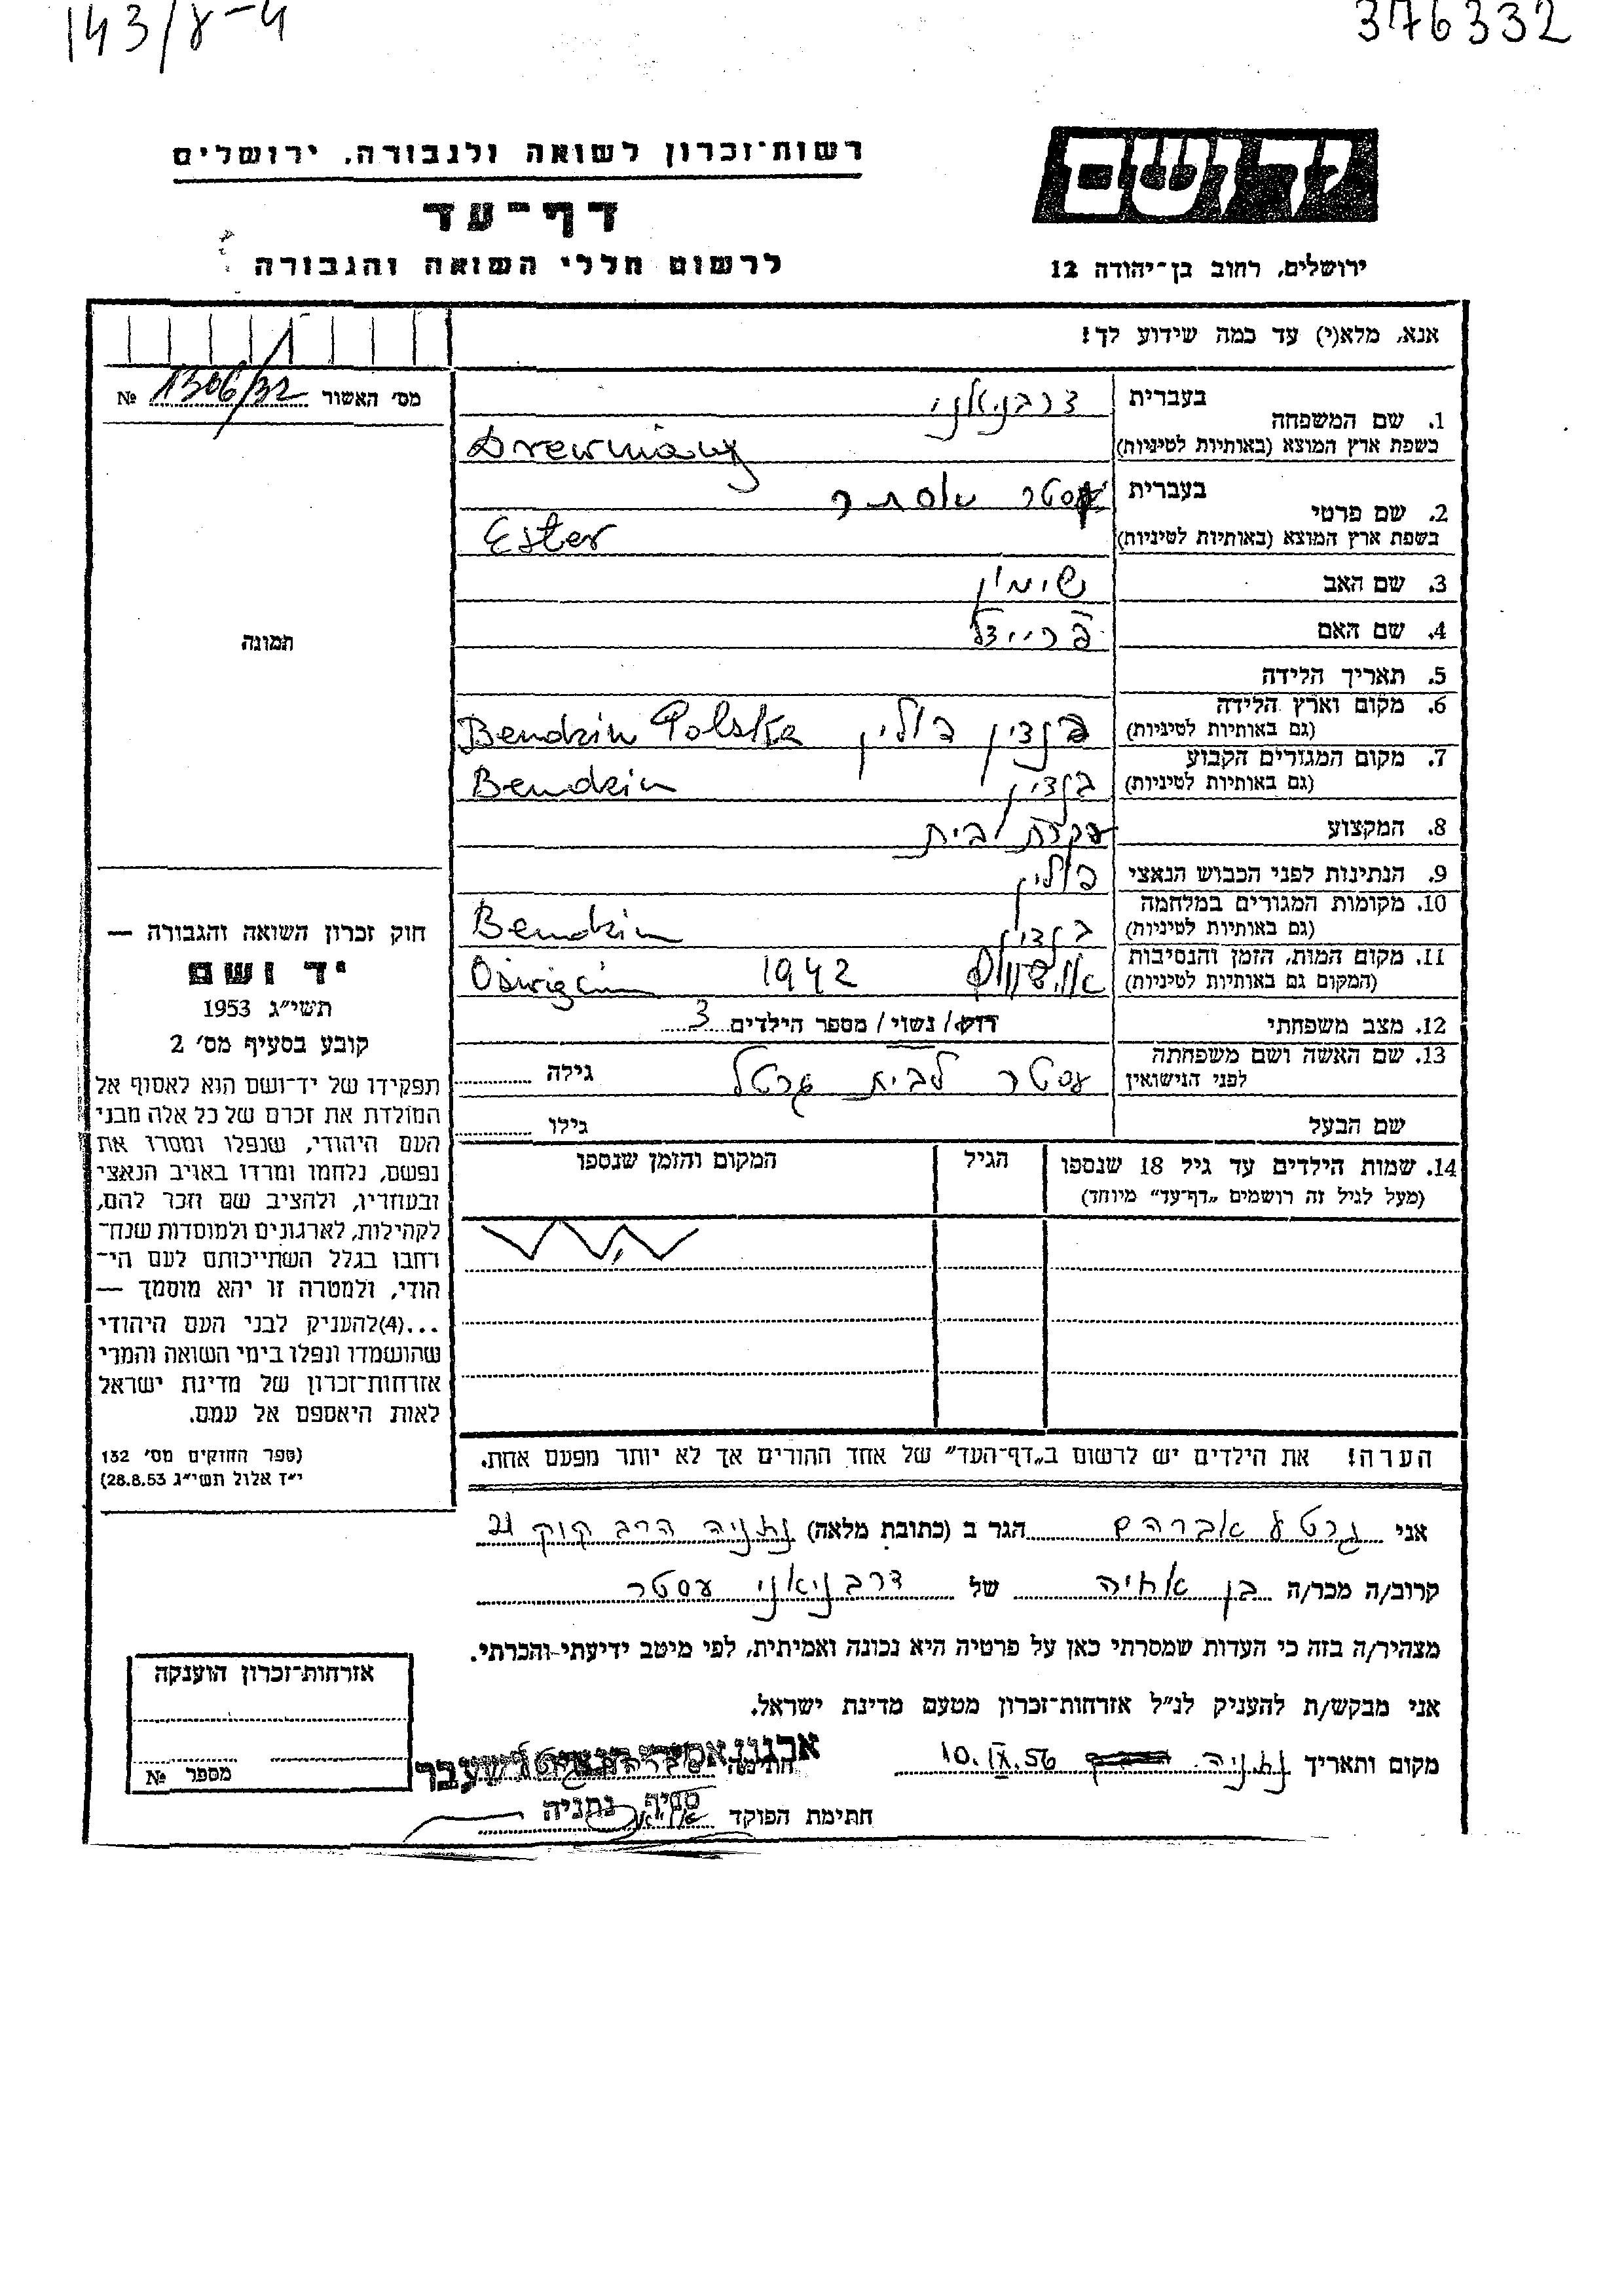 143/8-4
376332
רשות־זכרון לשואה ולגבורה, ירושלים
יד ושם
דף־עד
לרשום חללי השואה והגבורה
ירושלים, רחוב בן־יהודה 12
אנא, מלא(י) עד כמה שידוע לך!
מס׳ האשור 1306/32 №
1. שם המשפחה
בעברית דרבניאני
בשפת ארץ המוצא (באותיות לטיניות) Drewniany
2. שם פרטי
בעברית אסתר
בשפת ארץ המוצא (באותיות לטיניות) Ester
3. שם האב שימון
4. שם האם פריידל
תמונה
5. תאריך הלידה
6. מקום וארץ הלידה
(גם באותיות לטיניות) בנדין פולין Bendzin Polska
7. מקום המגורים הקבוע
(גם באותיות לטיניות) בנדין Bendzin
8. המקצוע עקרת בית
9. הנתינות לפני הכבוש הנאצי פולין
10. מקומות המגורים במלחמה
(גם באותיות לטיניות) בנדין Bendzin
11. מקום המות, הזמן והנסיבות
(המקום גם באותיות לטיניות) 1942
12. מצב משפחתי רווק/ נשוי/ מספר הילדים 3
13. שם האשה ושם משפחתה
לפני הנישואין עסטר לבית גרטל גילה
שם הבעל גילו
14. שמות הילדים עד גיל 18 שנספו
(מעל לגיל זה רושמים „דף־עד” מיוחד)
הגיל
המקום והזמן שנספו
חוק זכרון השואה והגבורה —
יד ושם
תשי״ג 1953
קובע בסעיף מס׳ 2
תפקידו של יד־ושם הוא לאסוף אל
המולדת את זכרם של כל אלה מבני
העם היהודי, שנפלו ומסרו את
נפשם, נלחמו ומרדו באויב הנאצי
ובעוזריו, ולהציב שם וזכר להם,
לקהילות, לארגונים ולמוסדות שנח־
רבו בגלל השתייכותם לעם הי־
הודי, ולמטרה זו יהא מוסמך —
...(4)להעניק לבני העם היהודי
שהושמדו ונפלו בימי השואה והמרי
אזרחות־זכרון של מדינת ישראל
לאות היאספם אל עמם.
(ספר החוקים מס׳ 132
י״ז אלול תשי״ג 28.8.53)
הערה! את הילדים יש לרשום ב„דף־העד” של אחד ההורים אך לא יותר מפעם אחת.
אני אברהם הגר ב (כתובת מלאה) נתניה הרב קוק 21
קרוב/ה מכר/ה בן אחיה של דרבניאני עסטר
מצהיר/ה בזה כי העדות שמסרתי כאן על פרטיה היא נכונה ואמיתית, לפי מיטב ידיעתי והכרתי.
אני מבקש/ת להעניק לנ״ל אזרחות־זכרון מטעם מדינת ישראל.
מקום ותאריך נתניה 10.IX.56 חתימה
ארגון אסירי הנאצים לשעבר
סניף נתניה
חתימת הפוקד
אזרחות־זכרון הוענקה
מספר №